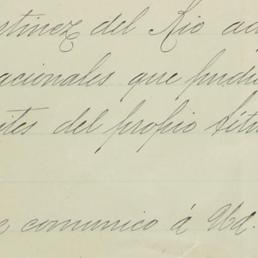 rtinez del Rio ad
acionales que pudi
ites del propio títu
comunico á Ud.